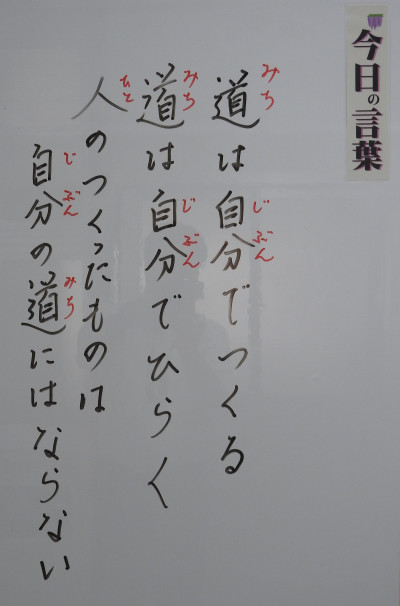 今日の言葉
道は自分でつくる
みち じぶん
道は自分でひらく
みち じぶん
人のつくったものは
ひと
自分の道にはならない
じぶん みち